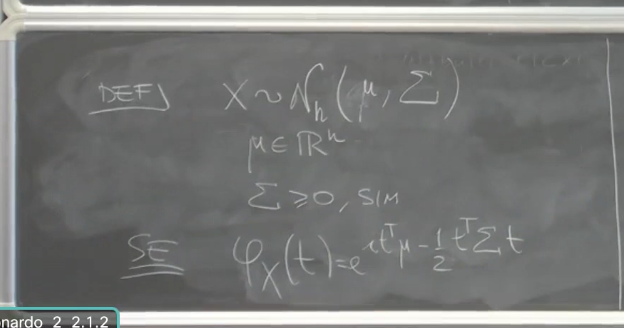 DEF) X ~ N_n(μ, Σ)
μ ∈ ℝⁿ
Σ ≥ 0, SIM
SE φ_X(t) = e^{it^Tμ - ½ t^TΣt}
nardo_2_2.1.2